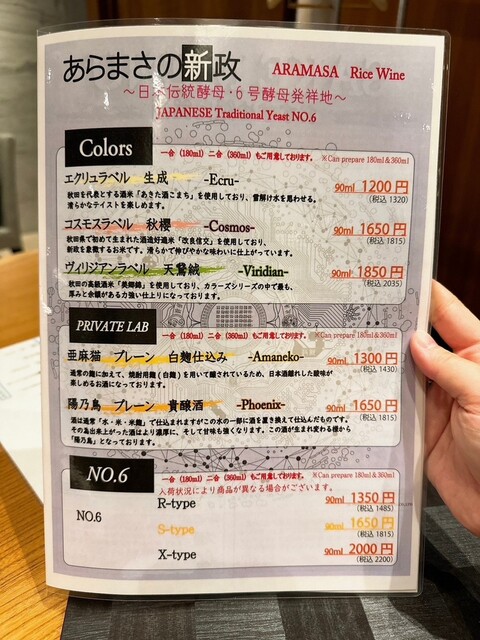 あらまさの新政 ARAMASA Rice Wine
～日本伝統酵母・6号酵母発祥地～
JAPANESE Traditional Yeast NO.6
Colors 一合 (180ml) 二合 (360ml) もご用意しております。 ※Can prepare 180ml&360ml
エクリュラベル 生成 -Ecru- 90ml 1200円
(税込 1320)
秋田を代表とする酒米「あきた酒こまち」を使用しており、雪解け水を思わせる。
滑らかなテイストを楽しめます。
コスモスラベル 秋櫻 -Cosmos- 90ml 1650円
(税込 1815)
秋田県で初めて生まれた酒造好適米「改良信交」を使用しており、
新政を象徴するお米です。滑らかで伸びやかな味わいに仕上がっています。
ヴィリジアンラベル 天鵞絨 -Viridian- 90ml 1850円
(税込 2035)
秋田の高級酒米「美郷錦」を使用しており、カラーズシリーズの中で最も、
厚みと余韻がある力強い仕上りになっております。
PRIVATE LAB 一合 (180ml) 二合 (360ml) もご用意しております。 ※Can prepare 180ml&360ml
亜麻猫 プレーン 白麹仕込み -Amaneko- 90ml 1300円
(税込 1430)
通常の麹に加えて、焼酎用麹(白麹)を用いて醸されているため、日本酒離れした酸味が
楽しめるお酒になっております。
陽乃鳥 プレーン 貴醸酒 -Phoenix- 90ml 1650円
(税込 1815)
酒は通常「水・米・米麹」で仕込まれますがこの水の一部に酒を置き換えて仕込んだものです。
その為出来上がった酒はより濃厚に、そして甘味も強くなります。この酒が生まれ変わる様から
「陽乃鳥」となっております。
NO.6 一合 (180ml) 二合 (360ml) もご用意しております。 ※Can prepare 180ml&360ml
入荷状況により商品が異なる場合がございます。
NO.6 R-type 90ml 1350円
(税込 1485)
S-type 90ml 1650円
(税込 1815)
X-type 90ml 2000円
(税込 2200)